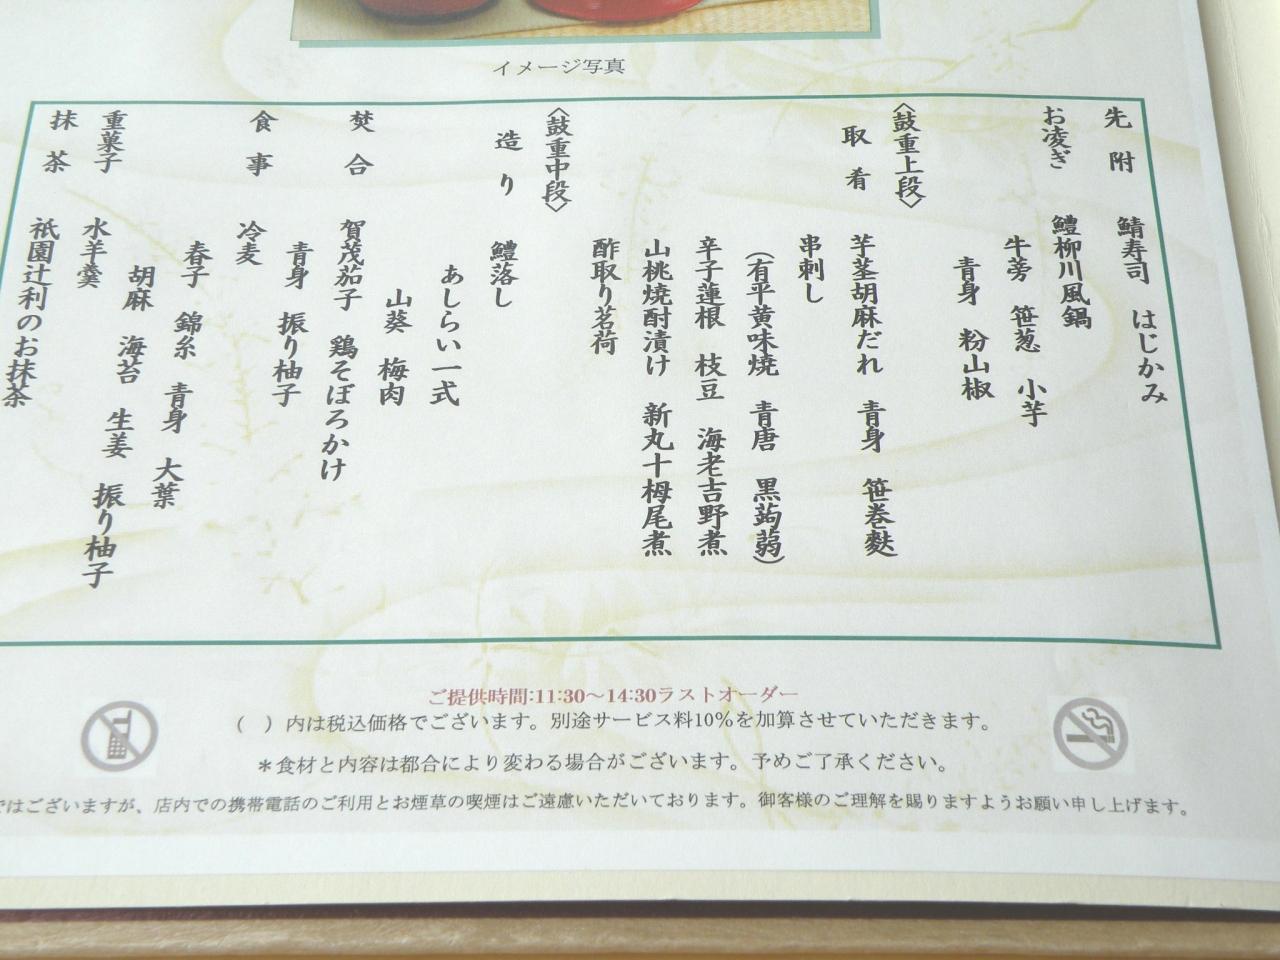 イメージ写真
先附
鯖寿司 はじかみ
お凌ぎ
鱧柳川風鍋
牛蒡 笹葱 小芋
青身 粉山椒
〈鼓重上段〉
取肴
芋茎胡麻だれ 青身 笹巻麩
串刺し
(有平黄味焼 青唐 黒蒟蒻)
辛子蓮根 枝豆 海老吉野煮
山桃焼酎漬け 新丸十栂尾煮
酢取り茗荷
〈鼓重中段〉
造り
鱧落し
あしらい一式
山葵 梅肉
焚合
賀茂茄子 鶏そぼろかけ
青身 振り柚子
食事
冷麦
春子 錦糸 青身 大葉
胡麻 海苔 生姜 振り柚子
重菓子
水羊羹
抹茶
祇園辻利のお抹茶
ご提供時間:11:30〜14:30ラストオーダー
( )内は税込価格でございます。別途サービス料10%を加算させていただきます。
＊食材と内容は都合により変わる場合がございます。予めご了承ください。
ではございますが、店内での携帯電話のご利用とお煙草の喫煙はご遠慮いただいております。御客様のご理解を賜りますようお願い申し上げます。